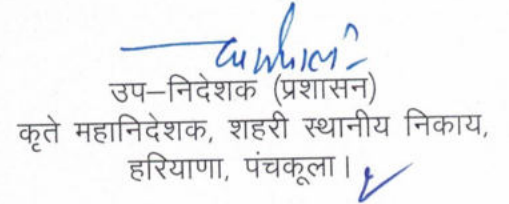 उप–निदेशक (प्रशासन)
कृते महानिदेशक, शहरी स्थानीय निकाय,
हरियाणा, पंचकूला।